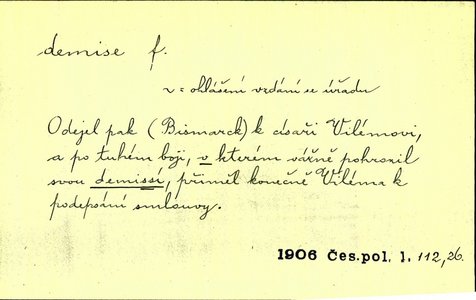 demise f.
~ = ohlášení vzdání se úřadu
Odejel pak (Bismarck) k císaři Vilémovi,
a po tuhém boji, v kterém vážně pohrozil
svou demissí, přiměl konečně Viléma k
podepsání smlouvy.
1906 Čes. pol. l. 112, 26.